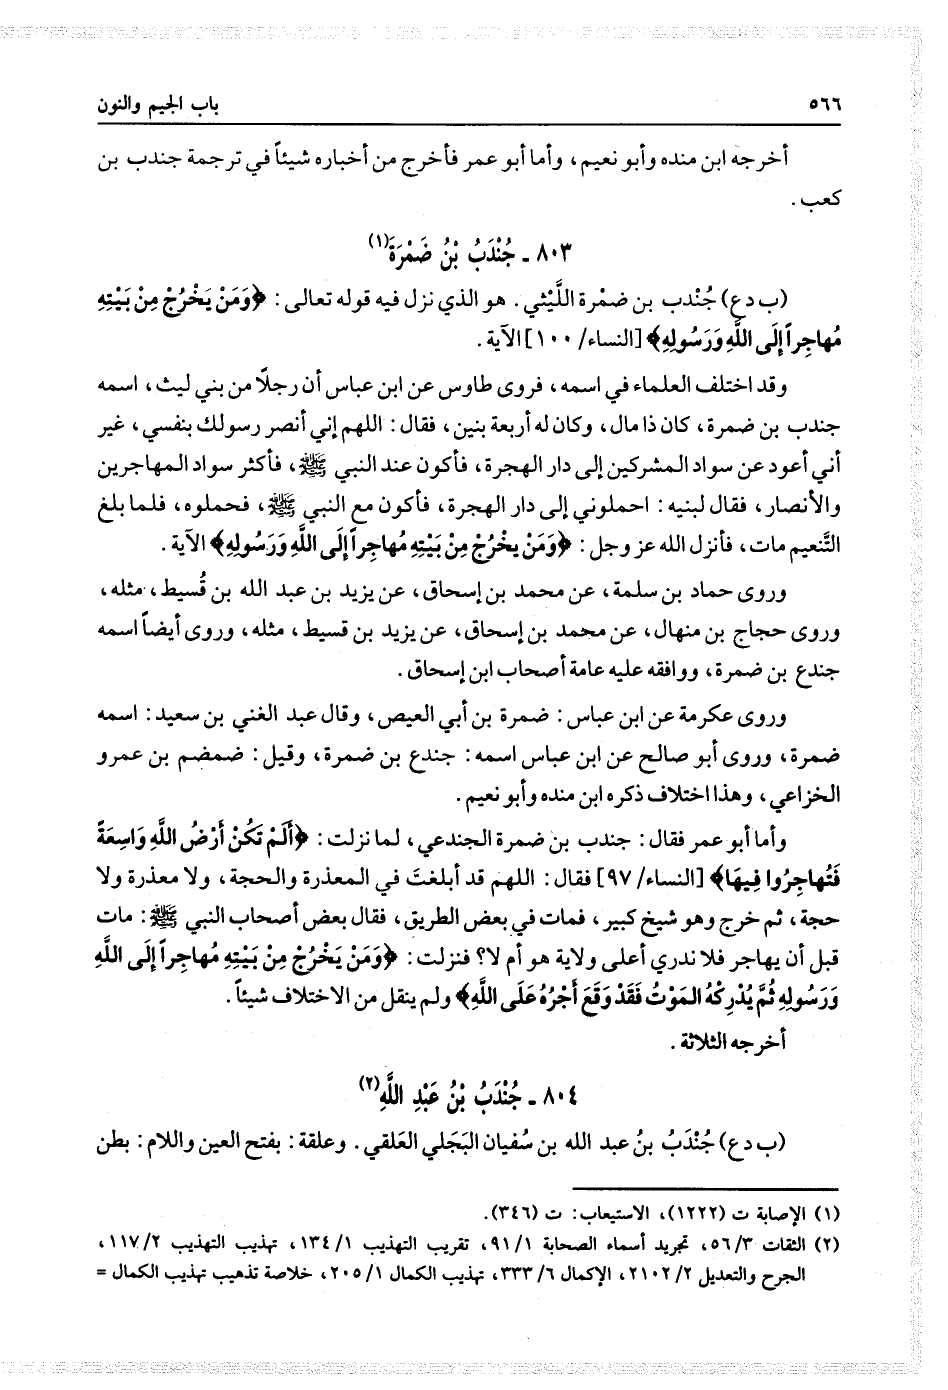 ٥٦٦ باب الجيم والنون
أخرجه ابن منده وأبو نعيم، وأما أبو عمر فأخرج من أخباره شيئاً في ترجمة جندب بن
كعب.
٨٠٣ ـ جُنْدَبُ بْنُ ضَمْرَةَ(١)
(ب د ع) جُنْدب بن ضمْرة اللَّيْثي. هو الذي نزل فيه قوله تعالى: ﴿وَمَنْ يَخْرُجْ مِنْ بَيْتِهِ
مُهاجِراً إِلَى اللَّهِ وَرَسُولِهِ﴾ [النساء/ ١٠٠] الآية.
وقد اختلف العلماء في اسمه، فروى طاوس عن ابن عباس أن رجلًا من بني ليث، اسمه
جندب بن ضمرة، كان ذا مال، وكان له أربعة بنين، فقال: اللهم إني أنصر رسولك بنفسي، غير
أني أعود عن سواد المشركين إلى دار الهجرة، فأكون عند النبي ﷺ، فأكثر سواد المهاجرين
والأنصار، فقال لبنيه: احملوني إلى دار الهجرة، فأكون مع النبي ﷺ، فحملوه، فلما بلغ
التَّنعيم مات، فأنزل الله عز وجل: ﴿وَمَنْ يخْرُجْ مِنْ بَيْتِهِ مُهاجِراً إِلَى اللَّهِ وَرَسُولِهِ﴾ الآية.
وروى حماد بن سلمة، عن محمد بن إسحاق، عن يزيد بن عبد الله بن قُسيط، مثله،
وروى حجاج بن منهال، عن محمد بن إسحاق، عن يزيد بن قسيط، مثله، وروى أيضاً اسمه
جندع بن ضمرة، ووافقه عليه عامة أصحاب ابن إسحاق.
وروى عكرمة عن ابن عباس: ضمرة بن أبي العيص، وقال عبد الغني بن سعيد: اسمه
ضمرة، وروى أبو صالح عن ابن عباس اسمه: جندع بن ضمرة، وقيل: ضمضم بن عمرو
الخزاعي، وهذا اختلاف ذكره ابن منده وأبو نعيم.
وأما أبو عمر فقال: جندب بن ضمرة الجندعي، لما نزلت: ﴿أَلَمْ تَكُنْ أَرْضُ اللَّهِ وَاسِعَةً
فَتُهاجِرُوا فِيهَا﴾ [النساء/ ٩٧] فقال: اللهم قد أبلغتَ في المعذرة والحجة، ولا معذرة ولا
حجة، ثم خرج وهو شيخ كبير، فمات في بعض الطريق، فقال بعض أصحاب النبي ﷺ: مات
قبل أن يهاجر فلا ندري أعلى ولاية هو أم لا؟ فنزلت: ﴿وَمَنْ يَخْرُجْ مِنْ بَيْتِهِ مُهاجِراً إِلَى اللَّهِ
وَرَسُولِهِ ثُمَّ يُدْرِكْهُ المَوْتُ فَقَدْ وَقَعَ أَجْرُهُ عَلَى اللَّهِ﴾ ولم ينقل من الاختلاف شيئاً.
أخرجه الثلاثة.
٨٠٤ ـ جُنْدَبُ بْنُ عَبْدِ اللَّهِ(٢)
(ب د ع) جُنْدَبُ بنُ عبد الله بن سُفيان البَجَلي العَلقي. وعلقة: بفتح العين واللام: بطن
(١) الإصابة ت (١٢٢٢)، الاستيعاب: ت (٣٤٦).
(٢) الثقات ٥٦/٣، تجريد أسماء الصحابة ٩١/١، تقريب التهذيب ١٣٤/١، تهذيب التهذيب ١١٧/٢،
الجرح والتعديل ٢١٠٢/٢، الإكمال ٣٣٣/٦، تهذيب الكمال ٢٠٥/١، خلاصة تذهيب تهذيب الكمال =